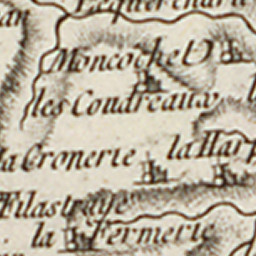 Moncoche
les Coudreaux
la Cronerie la Harp
Filastraye
la Fermerie